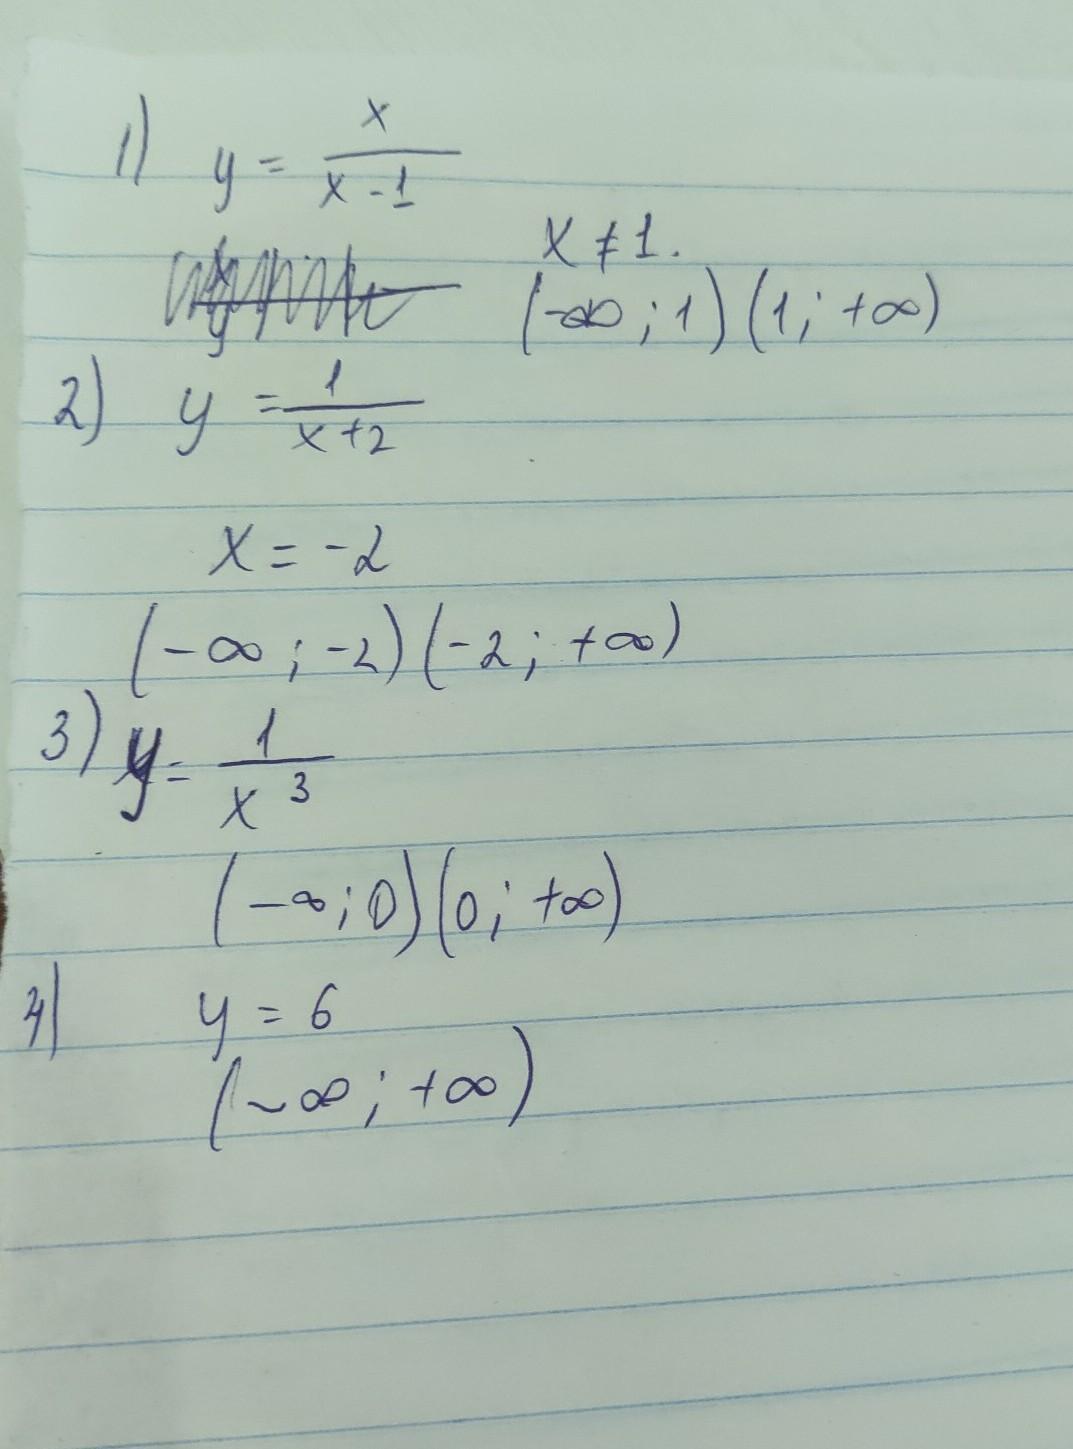 1) y = x / (x - 1)
x ≠ 1.
(-∞ ; 1) (1; +∞)
2) y = 1 / (x + 2)
x = -2
(-∞ ; -2) (-2 ; +∞)
3) y = 1 / x³
(-∞; 0) (0; +∞)
4) y = 6
(-∞ ; +∞)